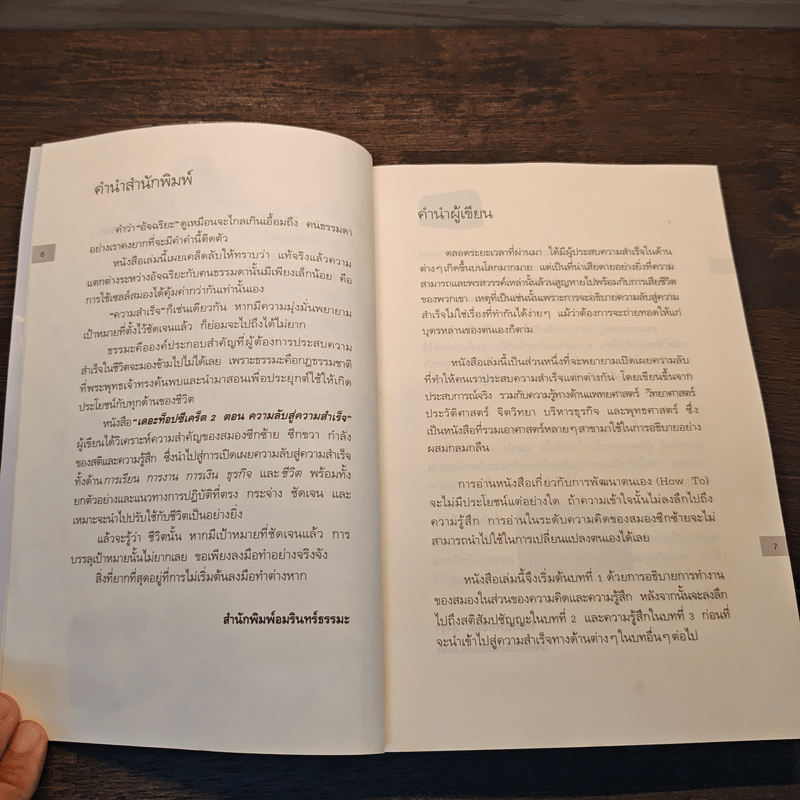 คำนำสำนักพิมพ์
คำว่า “อัจฉริยะ” ดูเหมือนจะไกลเกินเอื้อมถึง คนธรรมดา
อย่างเราคงยากที่จะมีคำคำนี้ติดตัว
6
หนังสือเล่มนี้เผยเคล็ดลับให้ทราบว่า แท้จริงแล้วความ
แตกต่างระหว่างอัจฉริยะกับคนธรรมดานั้นมีเพียงเล็กน้อย คือ
การใช้เซลล์สมองได้คุ้มค่ากว่ากันเท่านั้นเอง
“ความสำเร็จ” ก็เช่นเดียวกัน หากมีความมุ่งมั่นพยายาม
เป้าหมายที่ตั้งไว้ชัดเจนแล้ว ก็ย่อมจะไปถึงได้ไม่ยาก
ธรรมะคือองค์ประกอบสำคัญที่ผู้ต้องการประสบความ
สำเร็จในชีวิตจะมองข้ามไปไม่ได้เลย เพราะธรรมะคือกฎธรรมชาติ
ที่พระพุทธเจ้าทรงค้นพบและนำมาสอนเพื่อประยุกต์ใช้ให้เกิด
ประโยชน์กับทุกด้านของชีวิต
หนังสือ “เดอะท็อปซีเคร็ต 2 ตอน ความลับสู่ความสำเร็จ”
ผู้เขียนได้วิเคราะห์ความสำคัญของสมองซีกซ้าย ซีกขวา กำลัง
ของสติและความรู้สึก ซึ่งนำไปสู่การเปิดเผยความลับสู่ความสำเร็จ
ทั้งด้าน การเรียน การงาน การเงิน ธุรกิจ และชีวิต พร้อมทั้ง
ยกตัวอย่างและแนวทางการปฏิบัติที่ตรง กระจ่าง ชัดเจน และ
เหมาะจะนำไปปรับใช้กับชีวิตเป็นอย่างยิ่ง
แล้วจะรู้ว่า ชีวิตนั้น หากมีเป้าหมายที่ชัดเจนแล้ว การ
บรรลุเป้าหมายนั้นไม่ยากเลย ขอเพียงลงมือทำอย่างจริงจัง
สิ่งที่ยากที่สุดอยู่ที่การไม่เริ่มต้นลงมือทำต่างหาก
สำนักพิมพ์อมรินทร์ธรรมะ
คำนำผู้เขียน
ตลอดระยะเวลาที่ผ่านมา ได้มีผู้ประสบความสำเร็จในด้าน
ต่างๆ เกิดขึ้นบนโลกมากมาย แต่เป็นที่น่าเสียดายอย่างยิ่งที่ความ
สามารถและพรสวรรค์เหล่านั้นล้วนสูญหายไปพร้อมกับการเสียชีวิต
ของพวกเขา เหตุที่เป็นเช่นนั้นเพราะการจะอธิบายความลับสู่ความ
สำเร็จไม่ใช่เรื่องที่ทำกันได้ง่ายๆ แม้ว่าต้องการจะถ่ายทอดให้แก่
บุตรหลานของตนเองก็ตาม
หนังสือเล่มนี้เป็นส่วนหนึ่งที่จะพยายามเปิดเผยความลับ
ที่ทำให้คนเราประสบความสำเร็จแตกต่างกัน โดยเขียนขึ้นจาก
ประสบการณ์จริง รวมกับความรู้ทางด้านแพทยศาสตร์ วิทยาศาสตร์
ประวัติศาสตร์ จิตวิทยา บริหารธุรกิจ และพุทธศาสตร์ ซึ่ง
เป็นหนังสือที่รวมเอาศาสตร์หลายๆ สาขามาใช้ในการอธิบายอย่าง
ผสมกลมกลืน
การอ่านหนังสือเกี่ยวกับการพัฒนาตนเอง (How To)
จะไม่มีประโยชน์แต่อย่างใด ถ้าความเข้าใจนั้นไม่ลงลึกไปถึง
ความรู้สึก การอ่านในระดับความคิดของสมองซีกซ้ายจะไม่
สามารถนำไปใช้ในการเปลี่ยนแปลงตนเองได้เลย
7
หนังสือเล่มนี้จึงเริ่มต้นบทที่ 1 ด้วยการอธิบายการทำงาน
ของสมองในส่วนของความคิดและความรู้สึก หลังจากนั้นจะลงลึก
ไปถึงสติสัมปชัญญะในบทที่ 2 และความรู้สึกในบทที่ 3 ก่อนที่
จะนำเข้าไปสู่ความสำเร็จทางด้านต่างๆ ในบทอื่นๆ ต่อไป